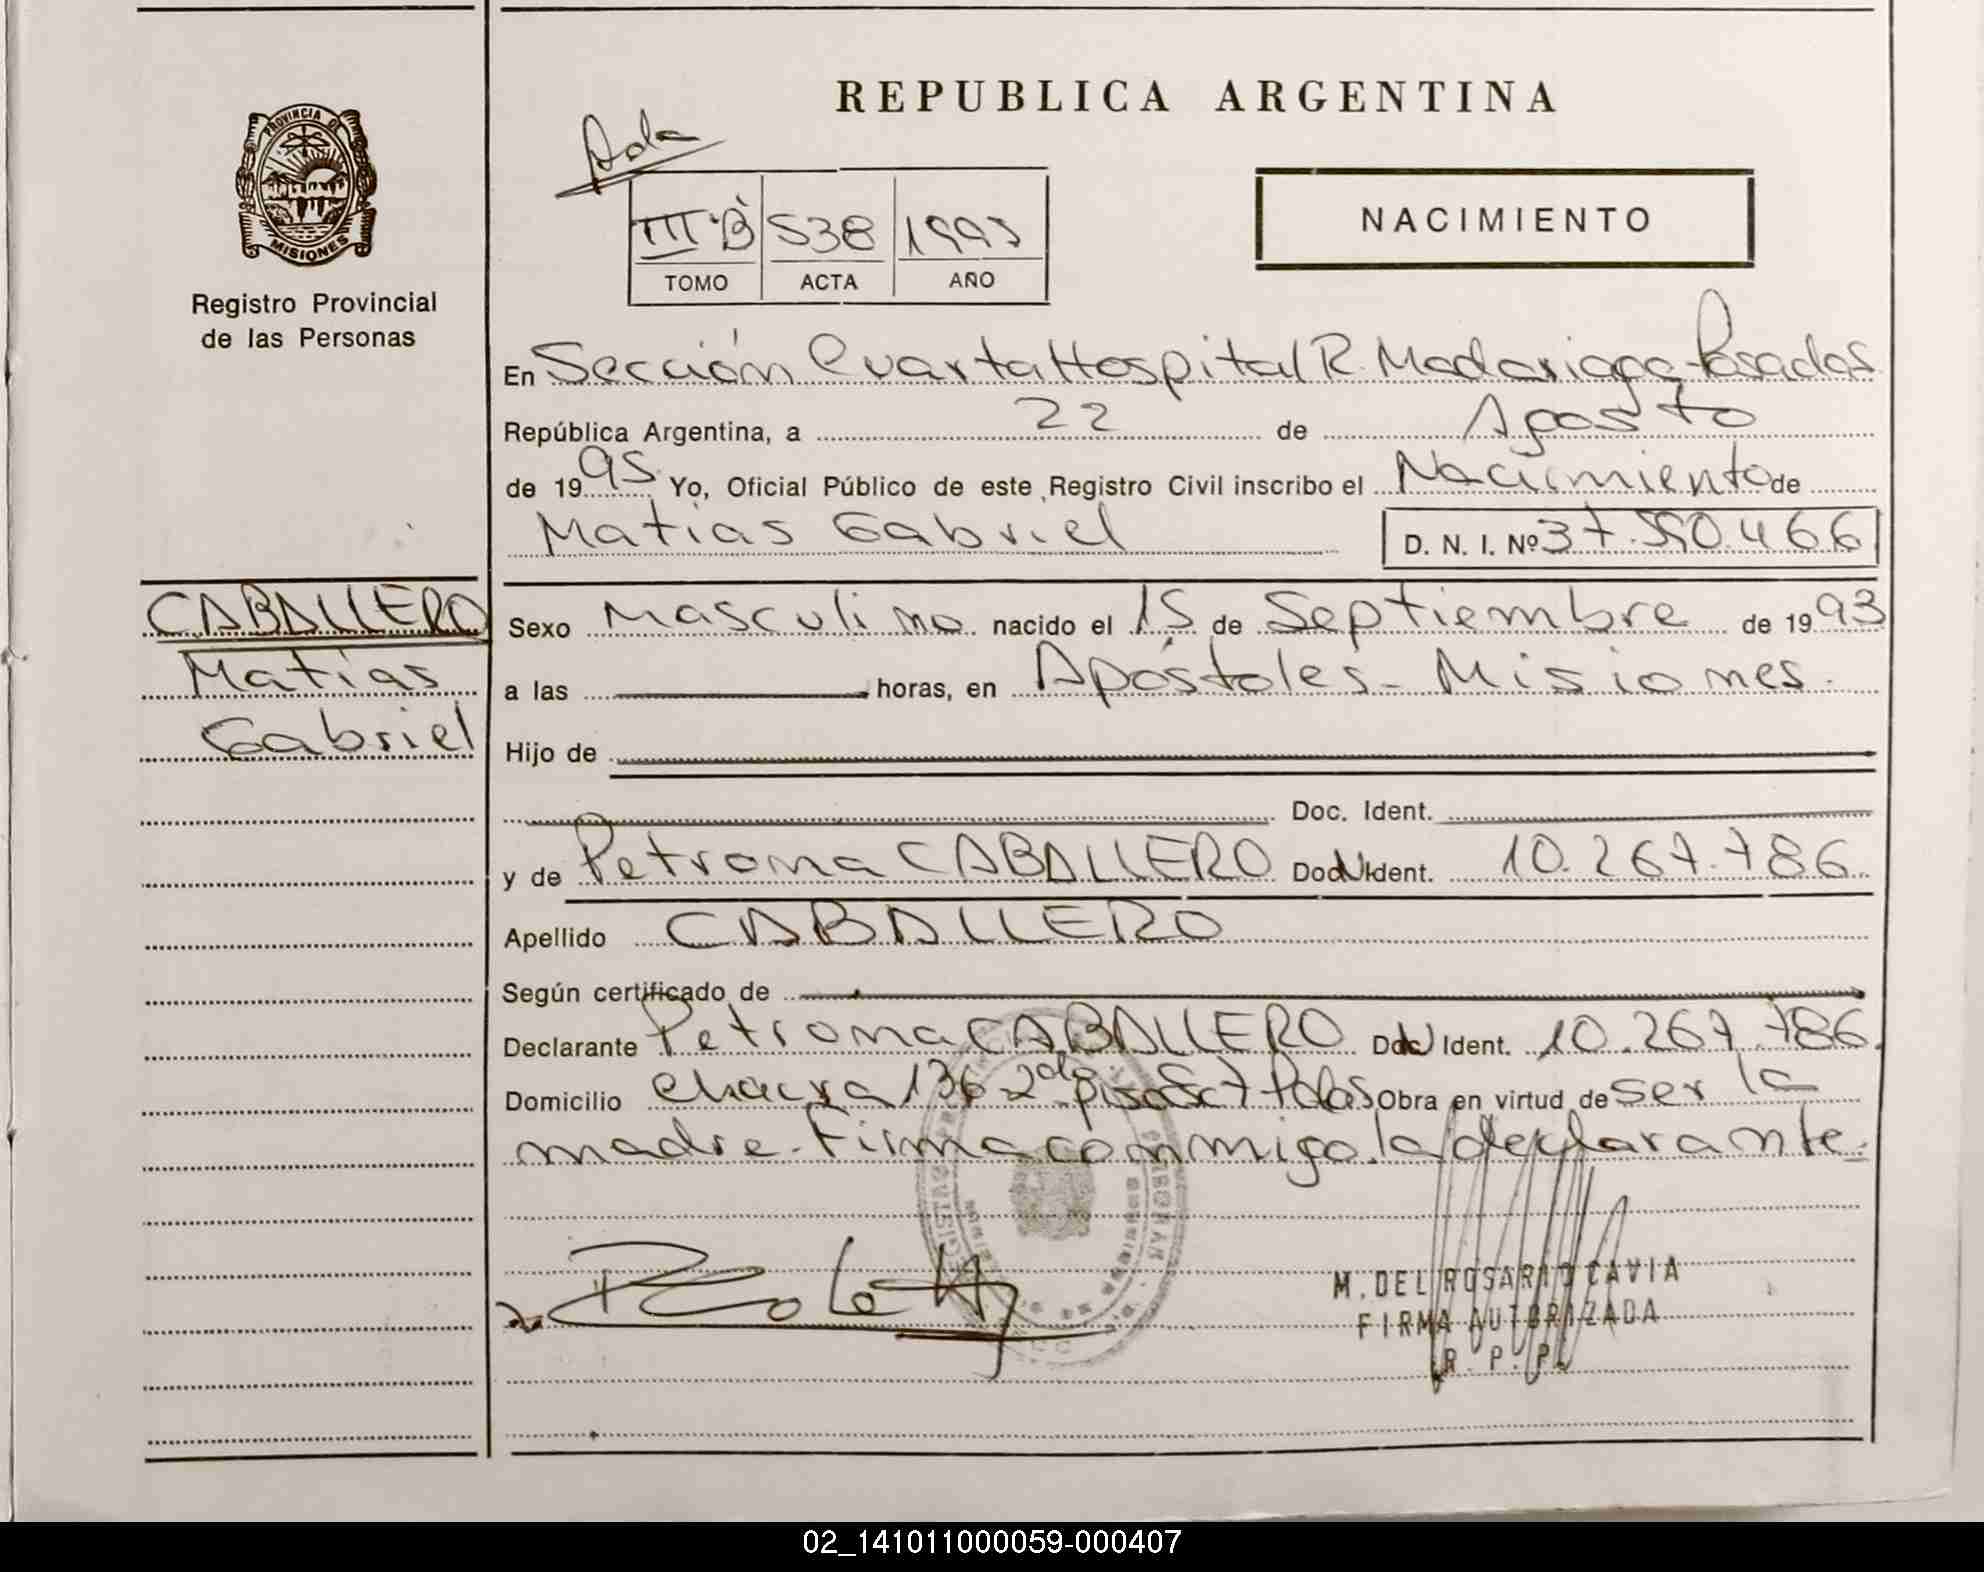 REPUBLICA ARGENTINA
PROVINCIA DE MISIONES
Registro Provincial
de las Personas
III "B" 538 1995
TOMO ACTA AÑO
NACIMIENTO
En Sección Cuarta Hospital R. Madariaga - Posadas
República Argentina, a 22 de Agosto
de 1995 Yo, Oficial Público de este Registro Civil inscribo el Nacimiento de
Matias Gabriel D. N. I. Nº 37.590.466
CABALLERO
Matías
Gabriel
Sexo Masculino nacido el 15 de Septiembre de 1993
a las horas, en Apóstoles - Misiones.
Hijo de
Doc. Ident.
y de Petrona CABALLERO Doc Ident. 10.267.786
Apellido CABALLERO
Según certificado de
Declarante Petrona CABALLERO Doc Ident. 10.267.786.
Domicilio chacra 136 2do piso Pdas Obra en virtud de ser la
madre. Firma conmigo la declarante.
M. DEL ROSARIO CAVIA
FIRMA AUTORIZADA
R. P. P.
02_141011000059-000407